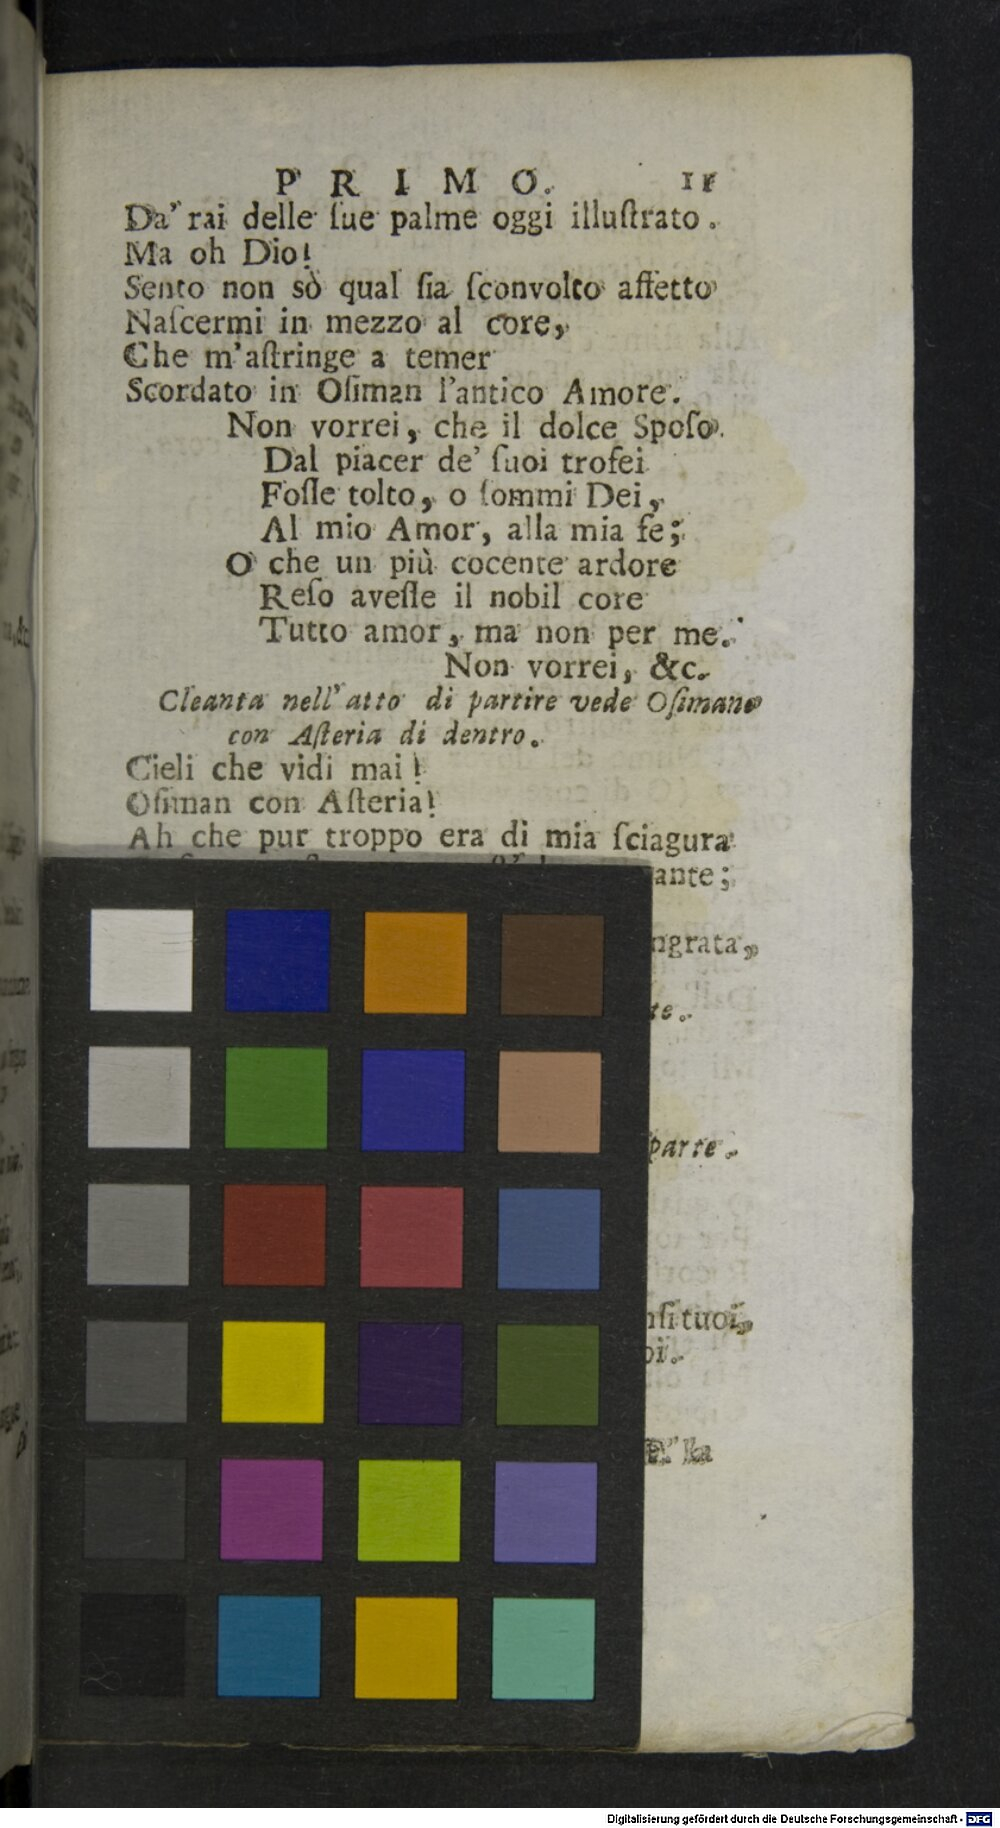 PRIMO. 11
Da' rai delle ſue palme oggi illuſtrato.
Ma oh Dio!
Sento non sò qual ſia ſconvolto affetto
Naſcermi in mezzo al core,
Che m'aſtringe a temer
Scordato in Oſiman l'antico Amore.
Non vorrei, che il dolce Spoſo
Dal piacer de' ſuoi trofei
Foſſe tolto, o ſommi Dei,
Al mio Amor, alla mia fe;
O che un più cocente ardore
Reſo aveſſe il nobil core
Tutto amor, ma non per me.
Non vorrei, &c.
Cleanta nell'atto di partire vede Oſimano
con Aſteria di dentro.
Cieli che vidi mai!
Oſiman con Aſteria!
Ah che pur troppo era di mia ſciagura
ante;
ngrata,
te.
parte.
nſi tuoi,
oi.
E' la
Digitalisierung gefördert durch die Deutsche Forschungsgemeinschaft - DFG